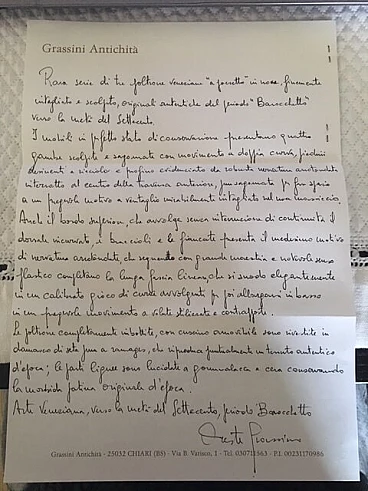 Grassini Antichità
Rara serie di tre poltrone veneziane "a pozzetto" in noce, finemente
intagliate e scolpite, originali autentiche del periodo "Barocchetto"
verso la metà del Settecento.
I mobili in perfetto stato di conservazione presentano quattro
gambe scolpite e sagomate con movimento a doppia curva, piedini
a ricciolo e profino evidenziato da nervatura
interrotto al centro della traversa anteriore, per spazio
a un pregevole motivo a ventaglio intagliato nel noce massiccio.
Anche il bordo superiore, che avvolge senza interruzione di continuità il
dorsale, i braccioli e le fiancate presenta il medesimo motivo
di nervatura, che con grande maestria e notevole senso
plastico completano la lunga fascia lineare, che si snoda elegantemente
in un calibrato gioco di curve avvolgenti per poi allargarsi in basso
in un pregevole movimento a volute stilizzate e contrapposte.
Le poltrone completamente imbottite, con cuscino amovibile sono rivestite in
damasco di seta a ramages, che in tessuto autentico
d'epoca; le parti lignee sono lucidate a gommalacca e cera conservando
la morbida patina originale d'epoca.
Arte Veneziana, verso la metà del Settecento, periodo Barocchetto
Grassini
Grassini Antichità - 25032 CHIARI (BS) - Via B. Varisco, 1 - Tel. 030711563 - P.I. 00231170986